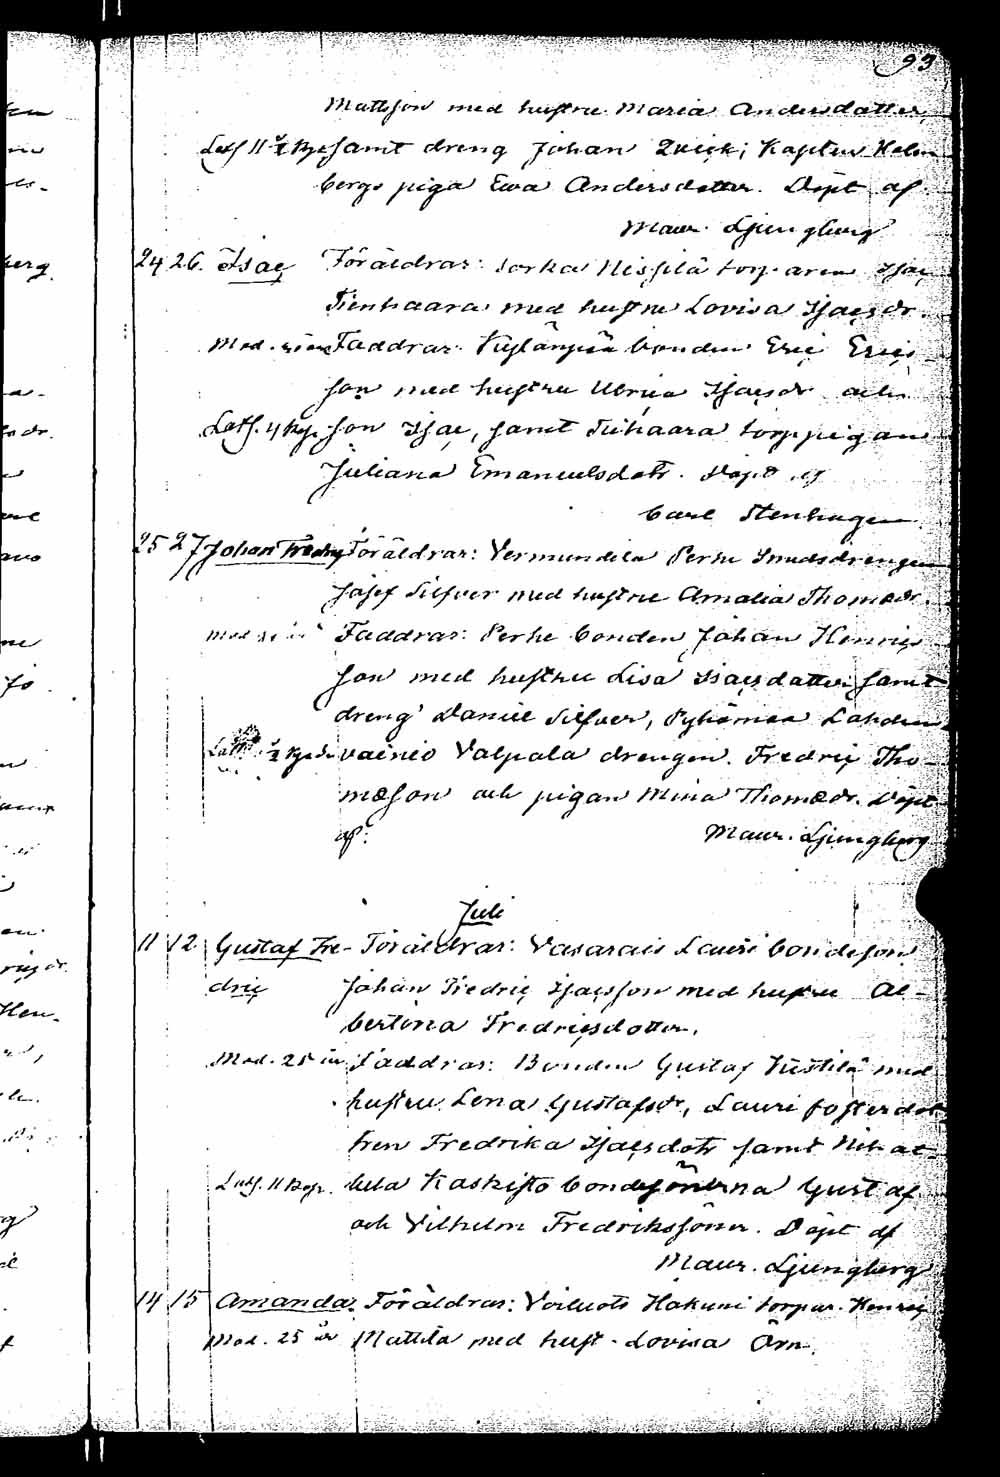 93
Mattsson med hustru Maria Andersdatter,
samt dreng Johan Qvick; Kapten Holm-
bergs piga Ewa Andersdotter. Döpt af
Maur. Ljungberg
24 26. Isac Föräldrar: Sorka Nissilä torparen Isac
Tienhaara med hustru Lovisa Isacsdr.
Mod. Faddrar: bonden Eric Erics-
son med hustru Ulrica Isacsdr och
Lutf. 4 kop. son Isac, samt Tiihaara torppigan
Juliana Emanuelsdotr. Döpt af
Carl Stenhagen
25 27 Johan Fredric Föräldrar: Vermundila Perhe Smedsdrengen
Josef Silfver med hustru Amalia Thomædr.
Mod. Faddrar: Perhe bonden Johan Henrics-
son med hustru Lisa Isacsdatter samt
dreng Daniel Silfver, Pyhämaa Lahden-
vainio Valpala drengen Fredric Tho-
mæson och pigan Mina Thomædr. Döpt
af: Maur. Ljungberg
Juli
11 12 Gustaf Fre- Föräldrar: Vasarais Lauri bondeson
dric Johan Fredric Isacsson med hustru Al-
bertina Fredricsdotter.
Mod. 25 år Faddrar: Bonden Gustaf med
hustru Lena Gustafsdr, Lauri fosterdot-
tren Fredrika Isacsdotr samt
Lutf. 11 kop. Kaskisto bondesönerna Gustaf
och Vilhelm Fredrikssöner. Döpt af
Maur. Ljungberg
14 15 Amanda Föräldrar: Voiluoto Hakuni torpar. Henric
Mod. 25 år Mattila med hust. Lovisa Örn.